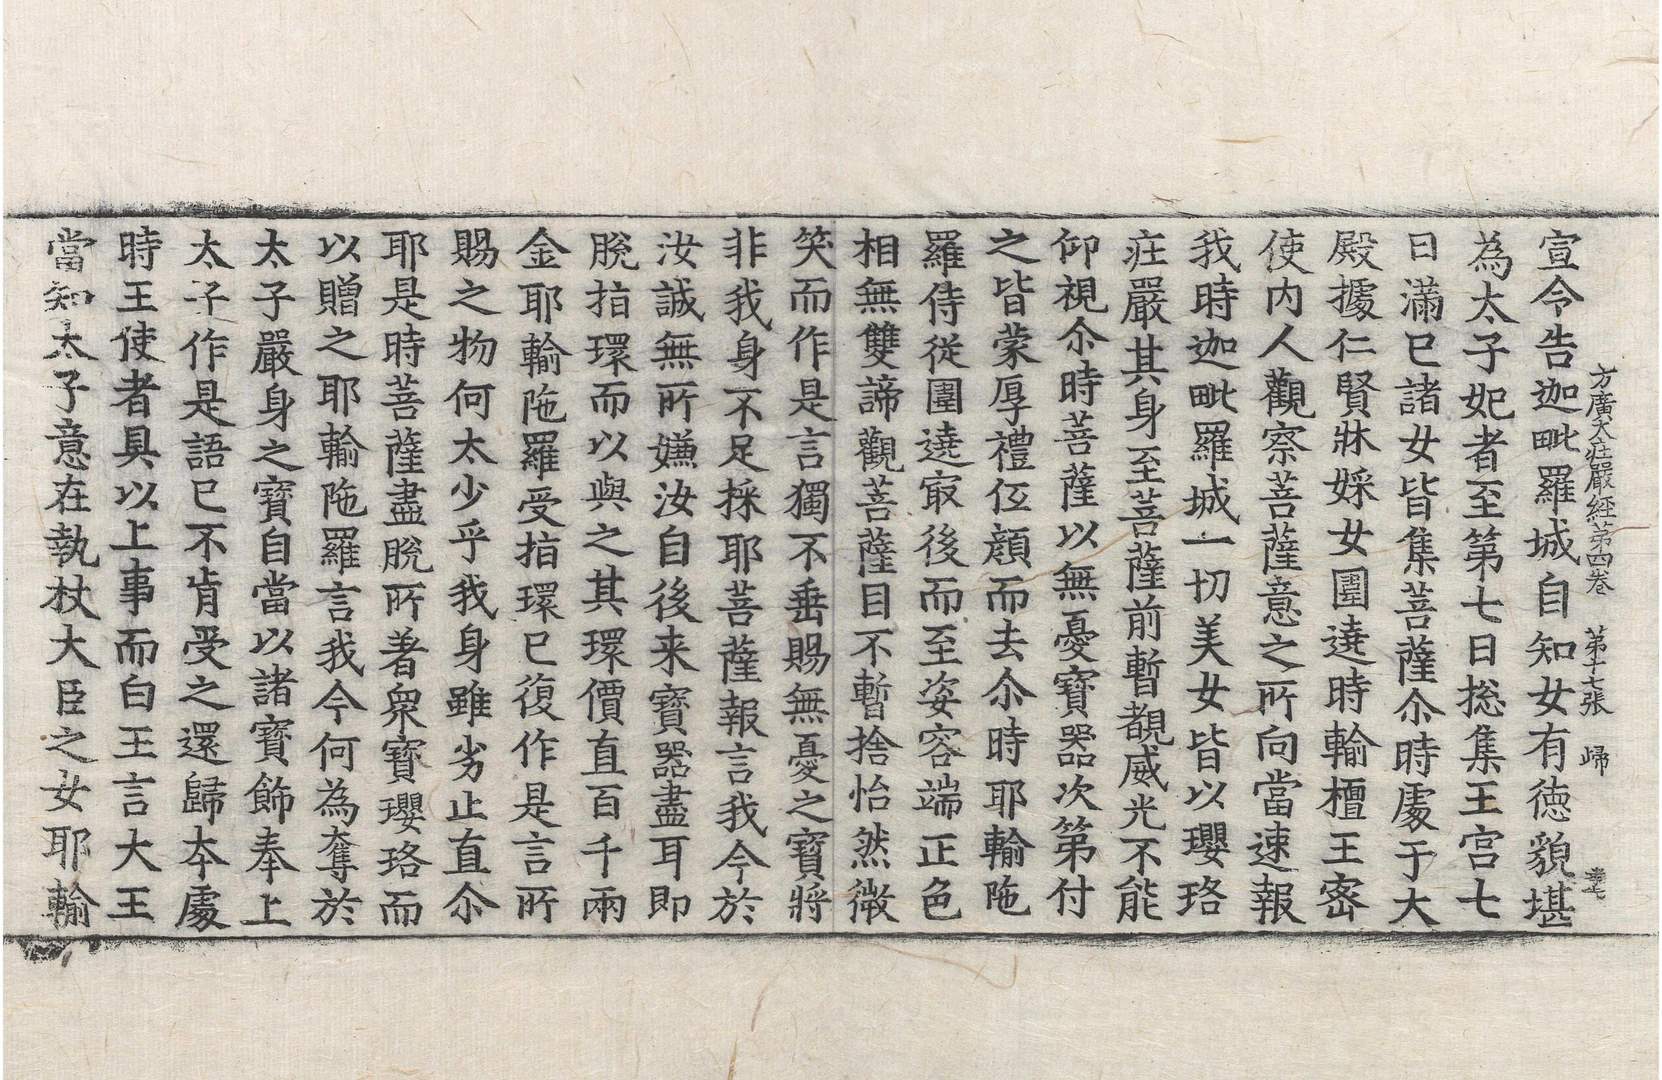 方廣大疘嚴經第四卷　第十七張　歸
宣令告迦毗羅城自知女有徳貌堪
為太子妃者至第七日捴集王宫七
日滿已諸女皆集菩薩尒時處于大
殿據仁賢牀婇女圍遶時輸檀王密
使内人觀察菩薩意之所向當速報
我時迦毗羅城一切美女皆以瓔珞
疘嚴其身至菩薩前暫覩威光不能
仰視尒時菩薩以無憂寶器次第付
之皆蒙厚禮伭顔而去尒時耶輸陁
羅侍從圍遶㝡後而至姿容端正色
相無雙諦觀菩薩目不暫捨怡然微
笑而作是言獨不垂賜無憂之寶將
非我身不足採耶菩薩報言我今於
汝誠無所嫌汝自後来寶器盡耳即
脫指環而以與之其環價直百千兩
金耶輸陁羅受指環已復作是言所
賜之物何太少乎我身雖劣止直尒
耶是時菩薩盡脫所著衆寶瓔珞而
以贈之耶輸陁羅言我今何為奪於
太子嚴身之寶自當以諸寶飾奉上
太子作是語已不肯受之還歸夲處
時王使者具以上事而白王言大王
當知太子意在執杖大臣之女耶輸